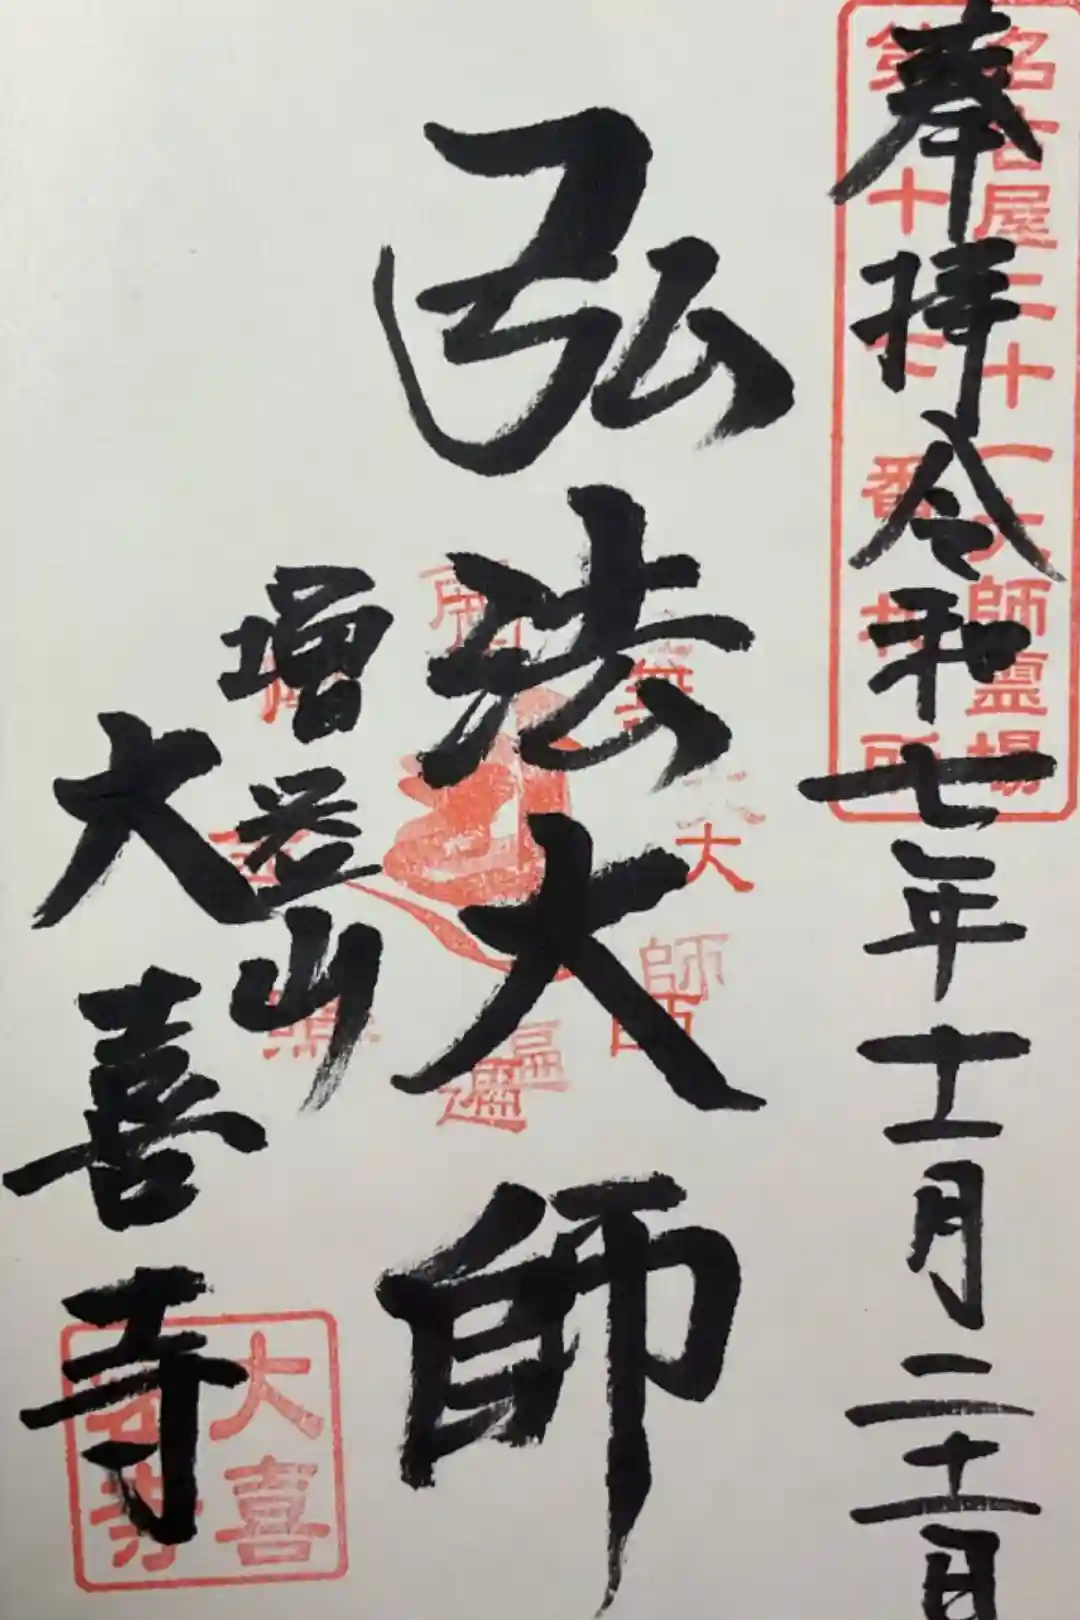 奉拝令和七年十一月二十一日
名古屋二十一大師靈場
第十七番札所
弘法大師
南無大師遍照金剛
増益山
大喜寺
大喜
寺